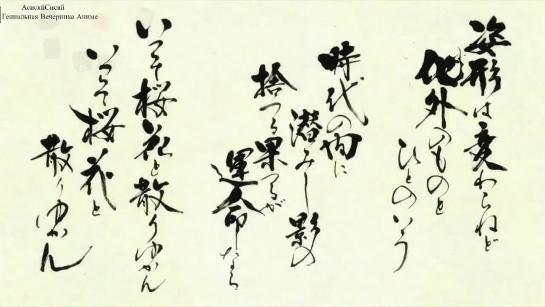 Гениальная Вечеринка Аниме
姿形は変わらねど
化外のものと
ひとのいう
時代の間に
潜みし影の
運命なら
いっそ桜花と散りゆかん
いっそ桜花と
散りゆかん